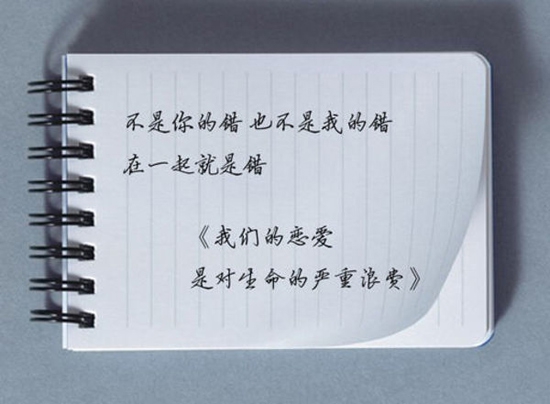 不是你的错 也不是我的错
在一起就是错
《我们的恋爱
是对生命的严重浪费》